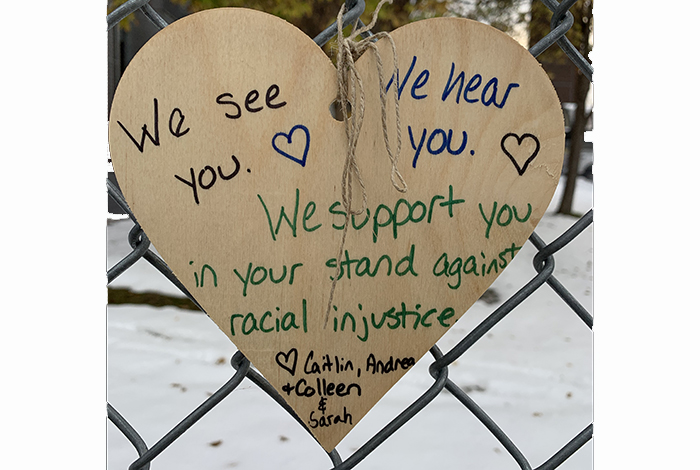 We see
you. ♡
We hear
you. ♡
We support you
in your stand against
racial injustice
♡ Caitlin, Andrea
+ Colleen
&
Sarah